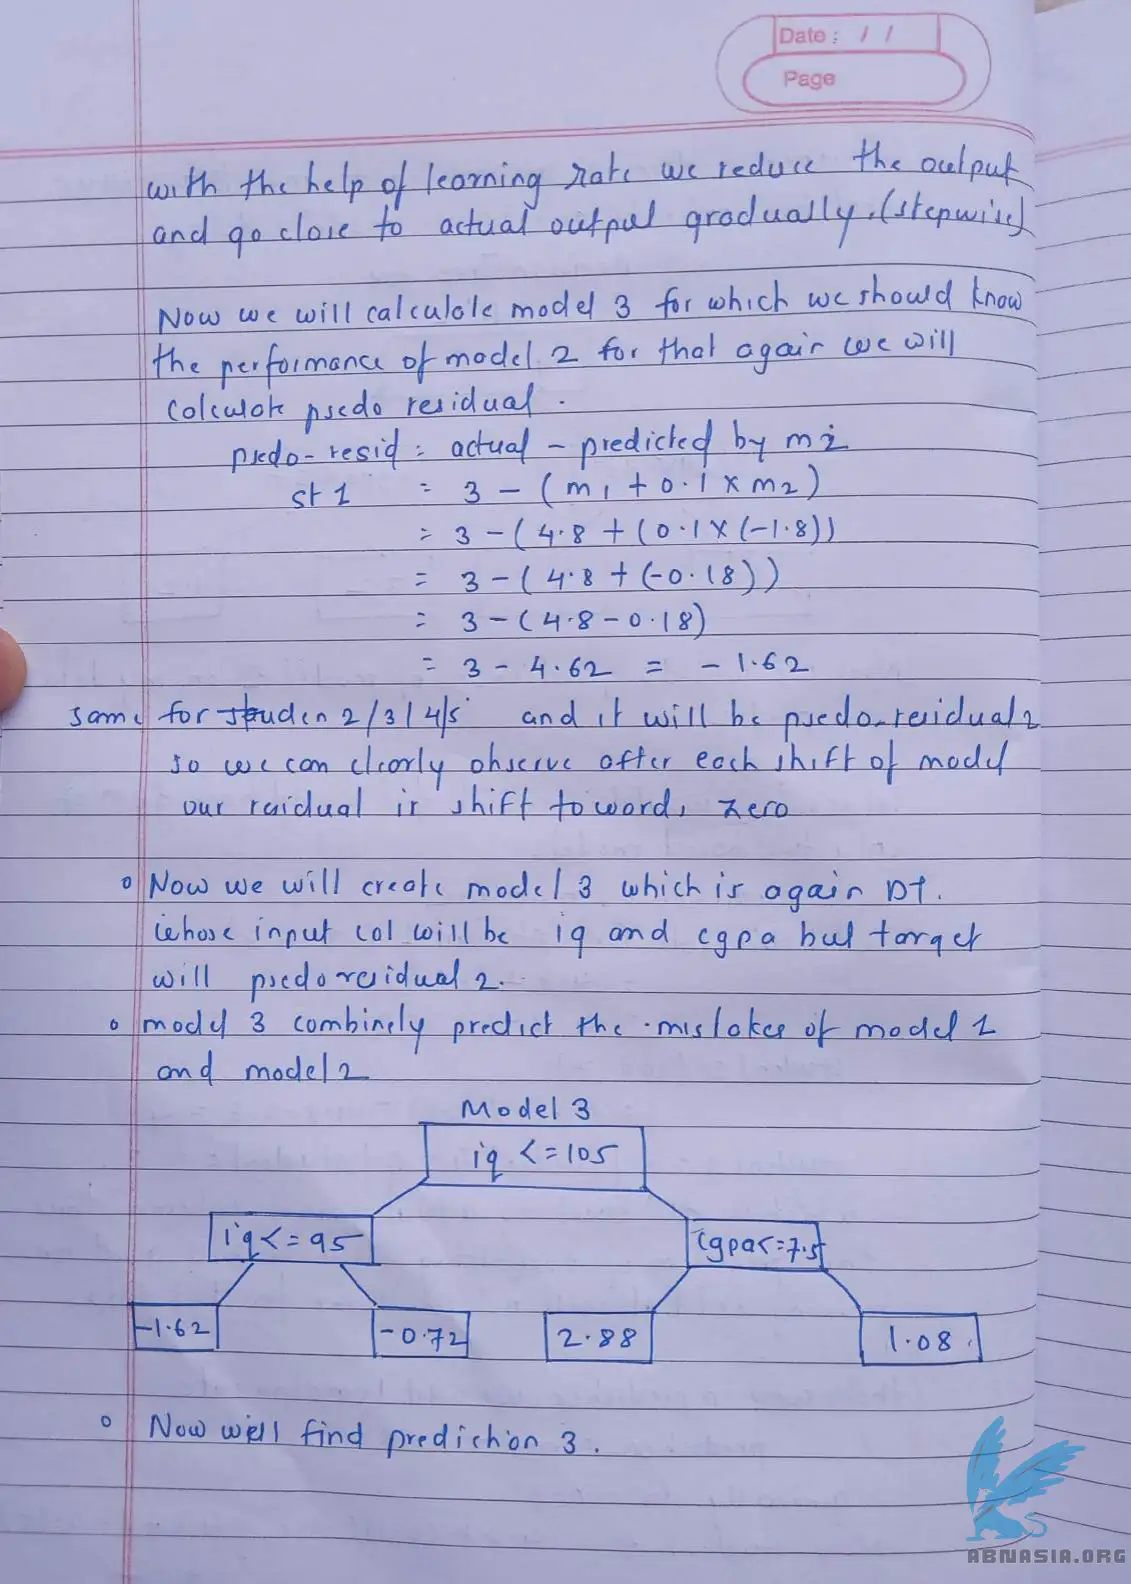 Date : / /
Page
with the help of learning rate we reduce the output
and go close to actual output gradually. (stepwise)
Now we will calculate model 3 for which we should know
the performance of model 2 for that again we will
calculate psedo residual.
psedo-resid = actual - predicted by m2
st 1 = 3 - (m1 + 0.1 x m2)
= 3 - (4.8 + (0.1 x (-1.8))
= 3 - (4.8 + (-0.18))
= 3 - (4.8 - 0.18)
= 3 - 4.62 = - 1.62
same for studen 2/3/4/5 and it will be psedo-residual 2
so we can clearly observe after each shift of model
our residual is shift towards zero
Now we will create model 3 which is again DT.
whose input col will be iq and cgpa but target
will psedoresidual 2.
model 3 combinely predict the mistakes of model 1
and model 2
Model 3
iq <= 105
iq <= 95
cgpa <= 7.5
-1.62
-0.72
2.88
1.08
Now well find prediction 3.
ABNASIA.ORG